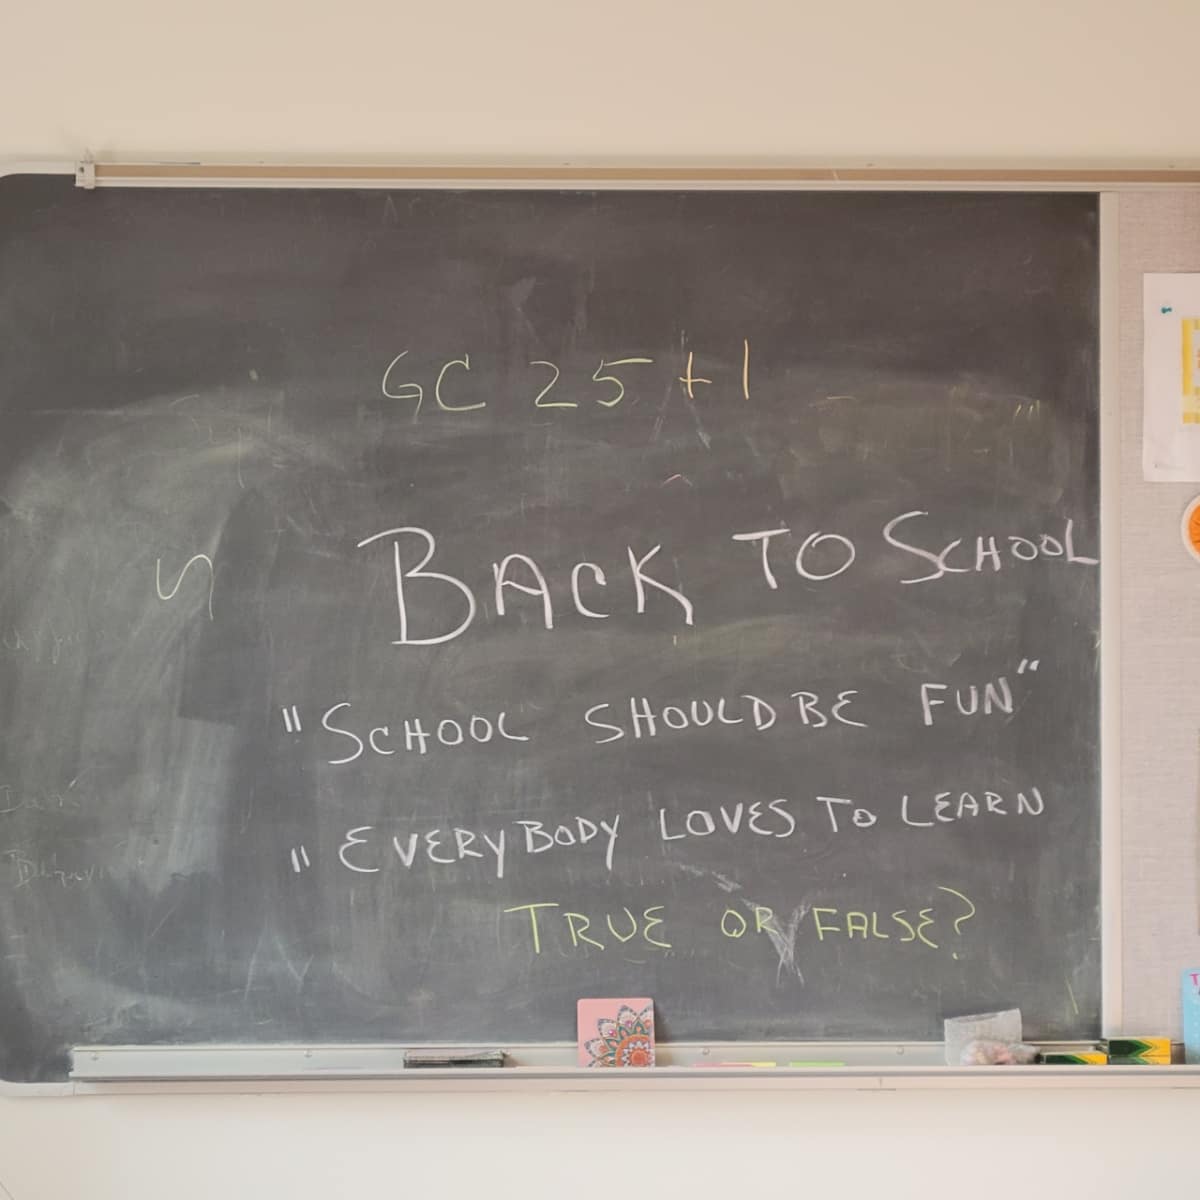 GC 25 + 1
BACK TO SCHOOL
"SCHOOL SHOULD BE FUN"
"EVERYBODY LOVES TO LEARN
TRUE OR FALSE?